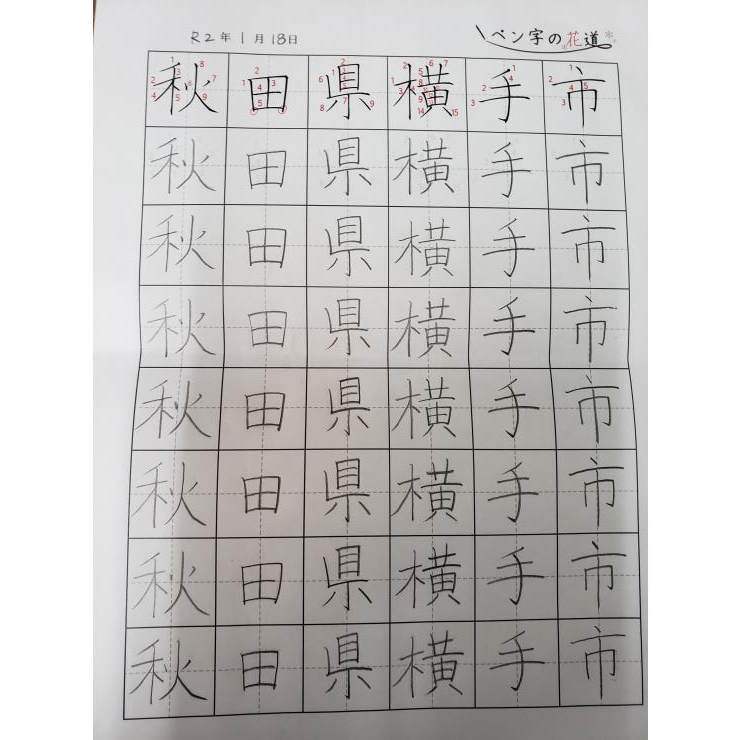 R2年1月18日
ペン字の花道
秋田県横手市
秋田県横手市
秋田県横手市
秋田県横手市
秋田県横手市
秋田県横手市
秋田県横手市
秋田県横手市